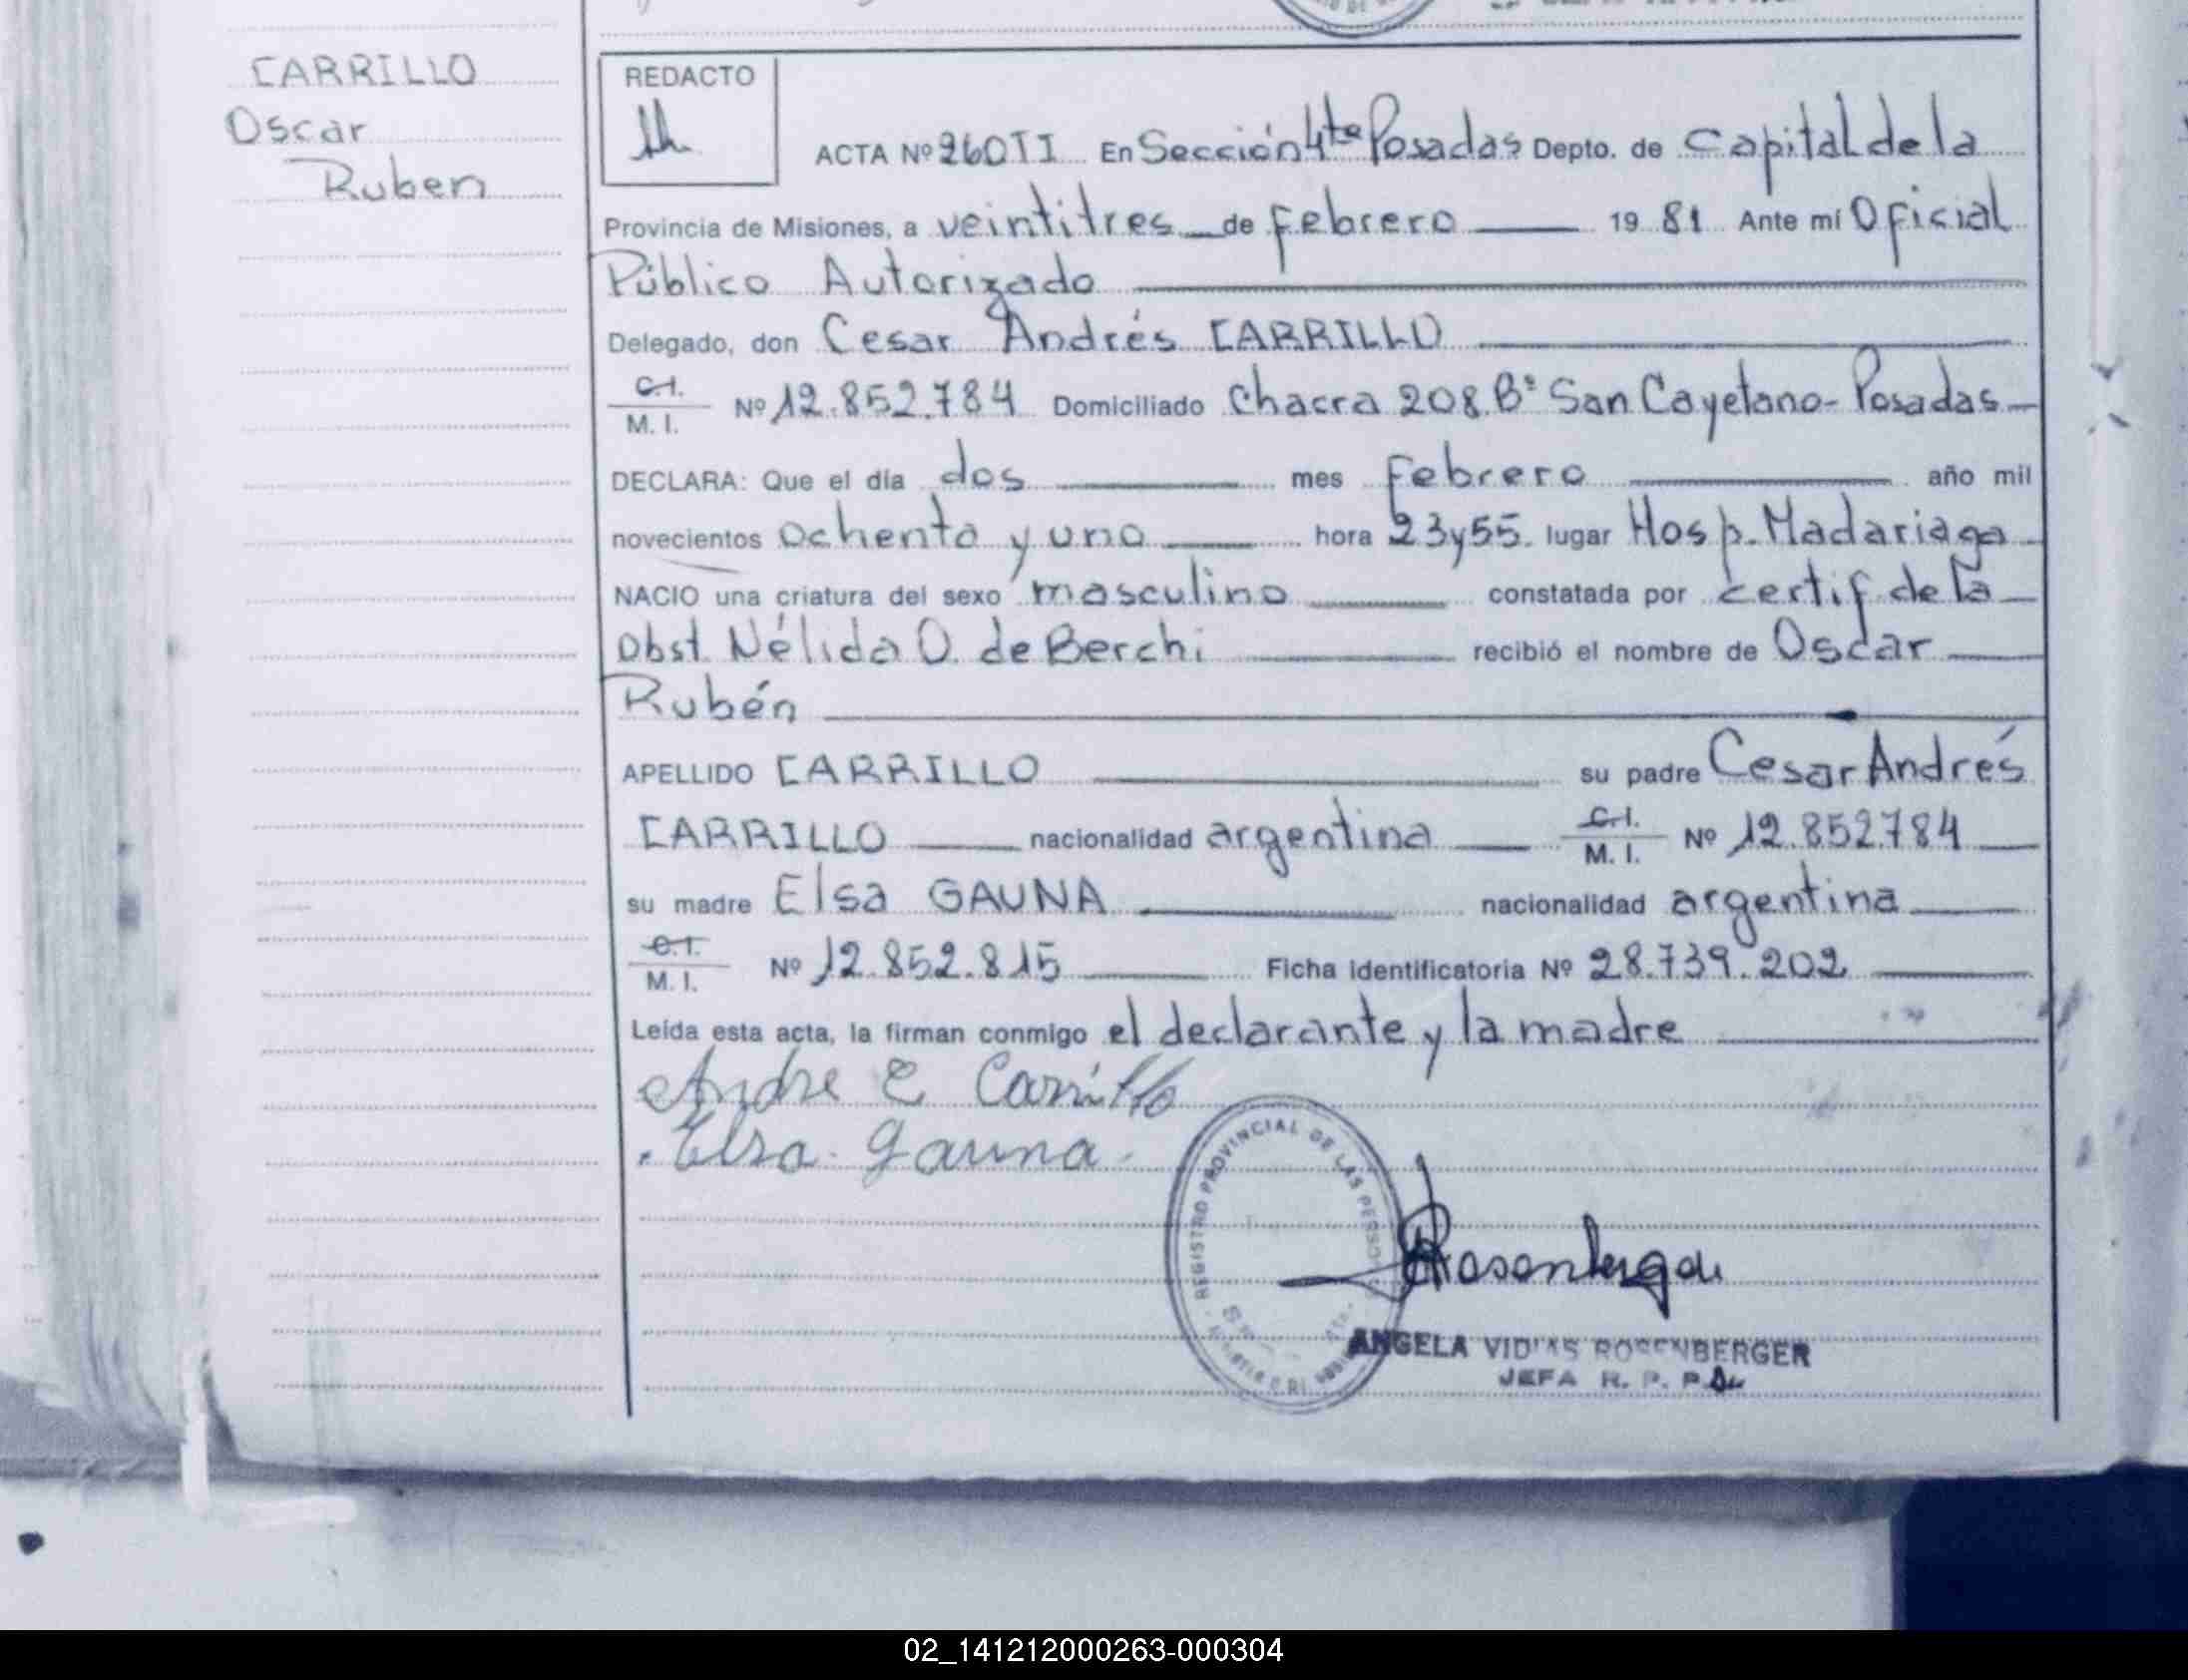 CARRILLO
Oscar
Ruben
REDACTO
ACTA Nº 260TI En Sección 4ta Posadas Depto. de Capital de la
Provincia de Misiones, a veintitres de febrero 19 81 Ante mí Oficial
Público Autorizado
Delegado, don Cesar Andrés CARRILLO
C.I.
M. I. Nº 12.852.784 Domiciliado Chacra 208 Bº San Cayetano - Posadas
DECLARA: Que el día dos mes febrero año mil
novecientos ochenta y uno hora 23 y 55 lugar Hosp. Madariaga
NACIO una criatura del sexo masculino constatada por certif. de la
Obst. Nélida O. de Berchi recibió el nombre de Oscar
Rubén
APELLIDO CARRILLO su padre Cesar Andrés
CARRILLO nacionalidad argentina C.I. M. I. Nº 12.852.784
su madre Elsa GAUNA nacionalidad argentina
C.I.
M. I. Nº 12.852.815 Ficha Identificatoria Nº 28.739.202
Leída esta acta, la firman conmigo el declarante y la madre
Andre C Carrillo
Elsa Gauna
REGISTRO PROVINCIAL DE LAS PERSONAS
ANGELA ROSENBERGER
JEFA R. P. P.
02_141212000263-000304